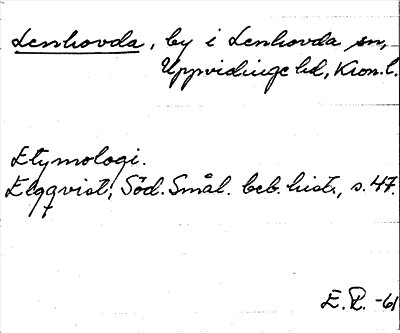 Lenhovda, by i Lenhovda sn,
Uppvidinge hd, Kron.l.
Etymologi.
Elgqvist, Söd. Smål. beb. hist., s. 47.
E. P. -61